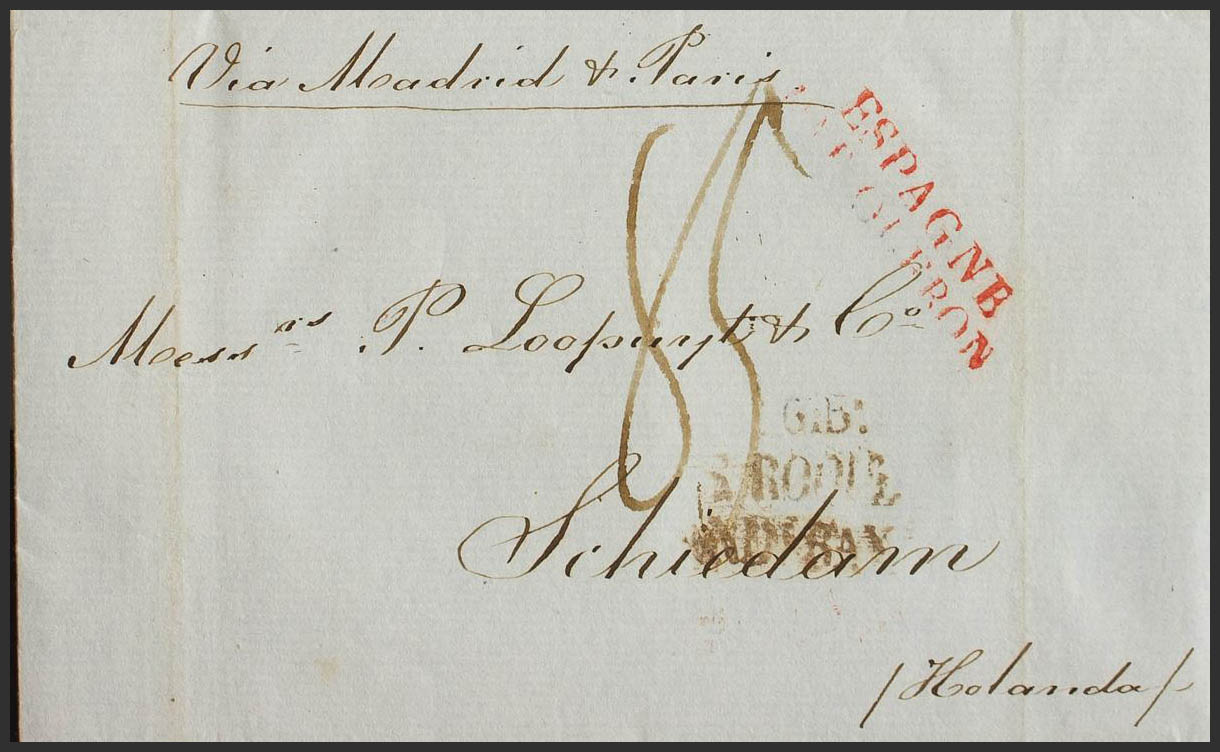 Via Madrid & Paris
ESPAGNE
OLERON
Mess.rs P. Loopuyt & Co
85
GIB:
S. ROQUE
Schiedam
/Holanda/